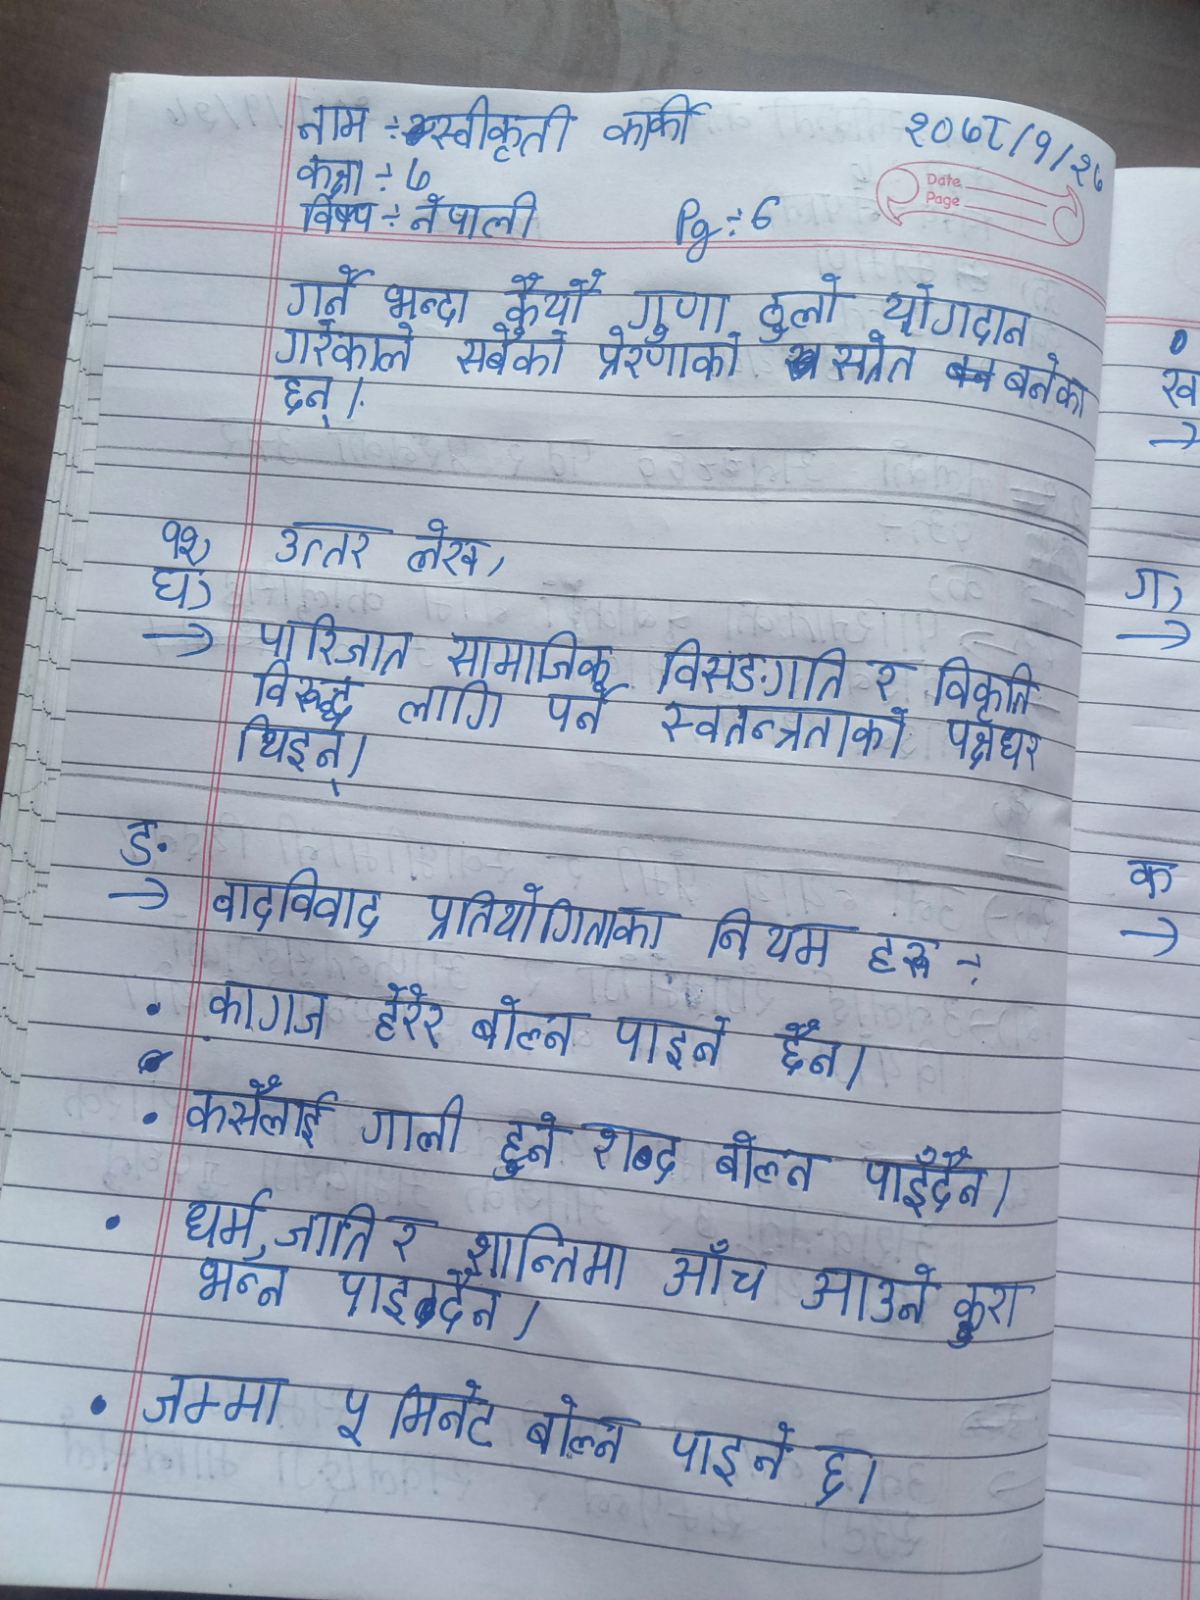 नाम ÷ स्वीकृती कार्की
२०७८/१/२७
कक्षा ÷ ७
Date
Page
विषय ÷ नेपाली
Pg ÷ 6
गर्ने भन्दा कैयौं गुणा ठुलो योगदान
गरेकाले सबैको प्रेरणाको स्रोत बनेका
छन्।
१२)
उत्तर लेख,
घ)
→ पारिजात सामाजिक विसङ्गति र विकृति
विरुद्ध लागि पर्ने स्वतन्त्रताको पक्षधर
थिइन्।
ङ.
→ वादविवाद प्रतियोगिताका नियम हरू ÷
• कागज हेरेर बोल्न पाइने छैन।
• कसैलाई गाली हुने शब्द बोल्न पाइँदैन।
• धर्म, जाति र शान्तिमा आँच आउने कुरा
भन्न पाइदैन।
• जम्मा ५ मिनेट बोल्न पाइने छ।
ख
→
ग)
→
क
→